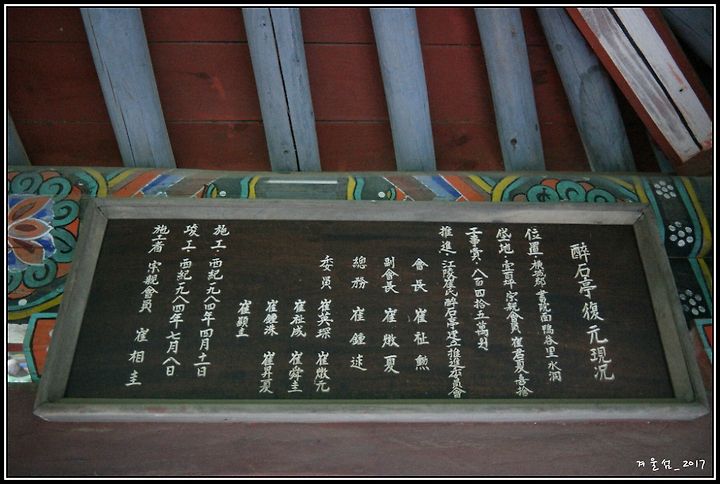 醉石亭復元現況
位置·橫城郡 書院面 鴨谷里 水洞
垈地·壹百坪 宗親會員 崔君夏 喜捨
工事費·八百四拾五萬원
推進·江陵崔氏醉石亭 推進委員會
會長 崔社勳
副會長 崔燉夏
總務 崔鍾述
委員 崔英琛 崔燉元
崔在成 崔舜圭
崔鍾洙 崔昇夏
崔顯圭
施工 西紀一九八四年四月十一日
竣工 西紀一九八四年七月八日
施工者 宗親會員 崔相圭
겨울섬_2017